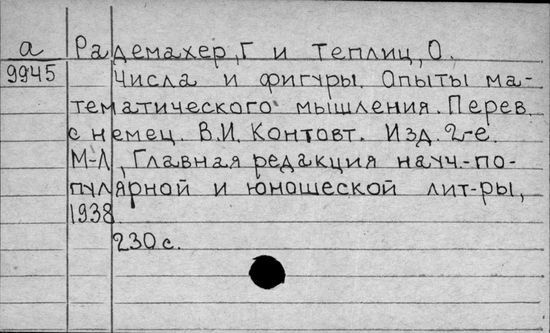 а Радемахер, Г и Теплиц, О.
9945 Числа и фигуры. Опыты ма-
тематического мышления. Перев.
с немец. В.И. Контовт. Изд. 2-е.
М-Л, Главная редакция науч.-по-
пулярной и юношеской лит-ры,
1938
230 с.